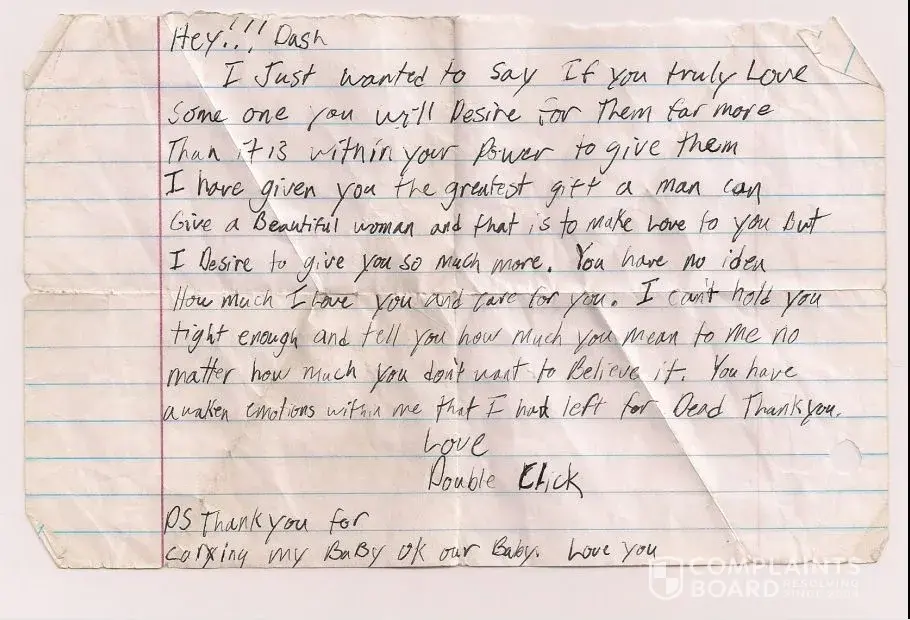 Hey!!! Dash
I Just wanted to say If you truly Love
Some one you will Desire for Them far more
Than it is within your Power to give them
I have given you the greatest gift a man can
Give a Beautiful woman and that is to make Love to you But
I Desire to give you so much more. You have no idea
How much I Love you and care for you. I can't hold you
tight enough and tell you how much you mean to me no
matter how much you don't want to Believe it. You have
awaken emotions within me that I had left for Dead Thankyou.
Love
Double Click
PS Thank you for
carxing my BaBy OK our Baby. Love you
COMPLAINTS
BOARD RESOLVING
SINCE 2004